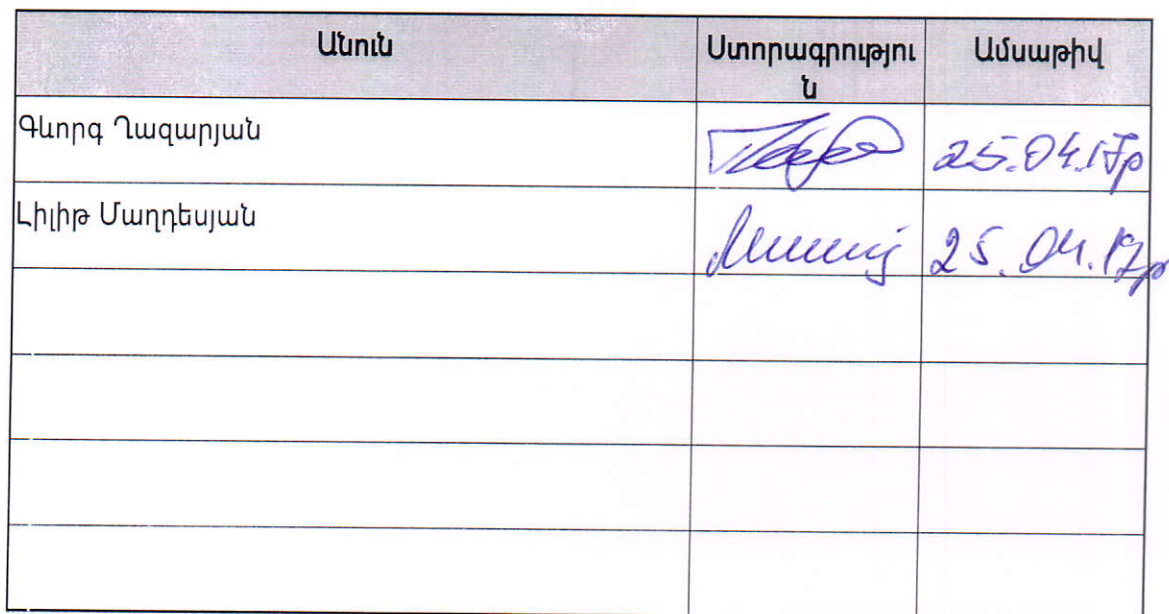 Անուն Ստորագրությու Ամսաթիվ
ն
Գևորգ Ղազարյան 25.04.17թ
Լիլիթ Մաղդեսյան 25.04.17թ